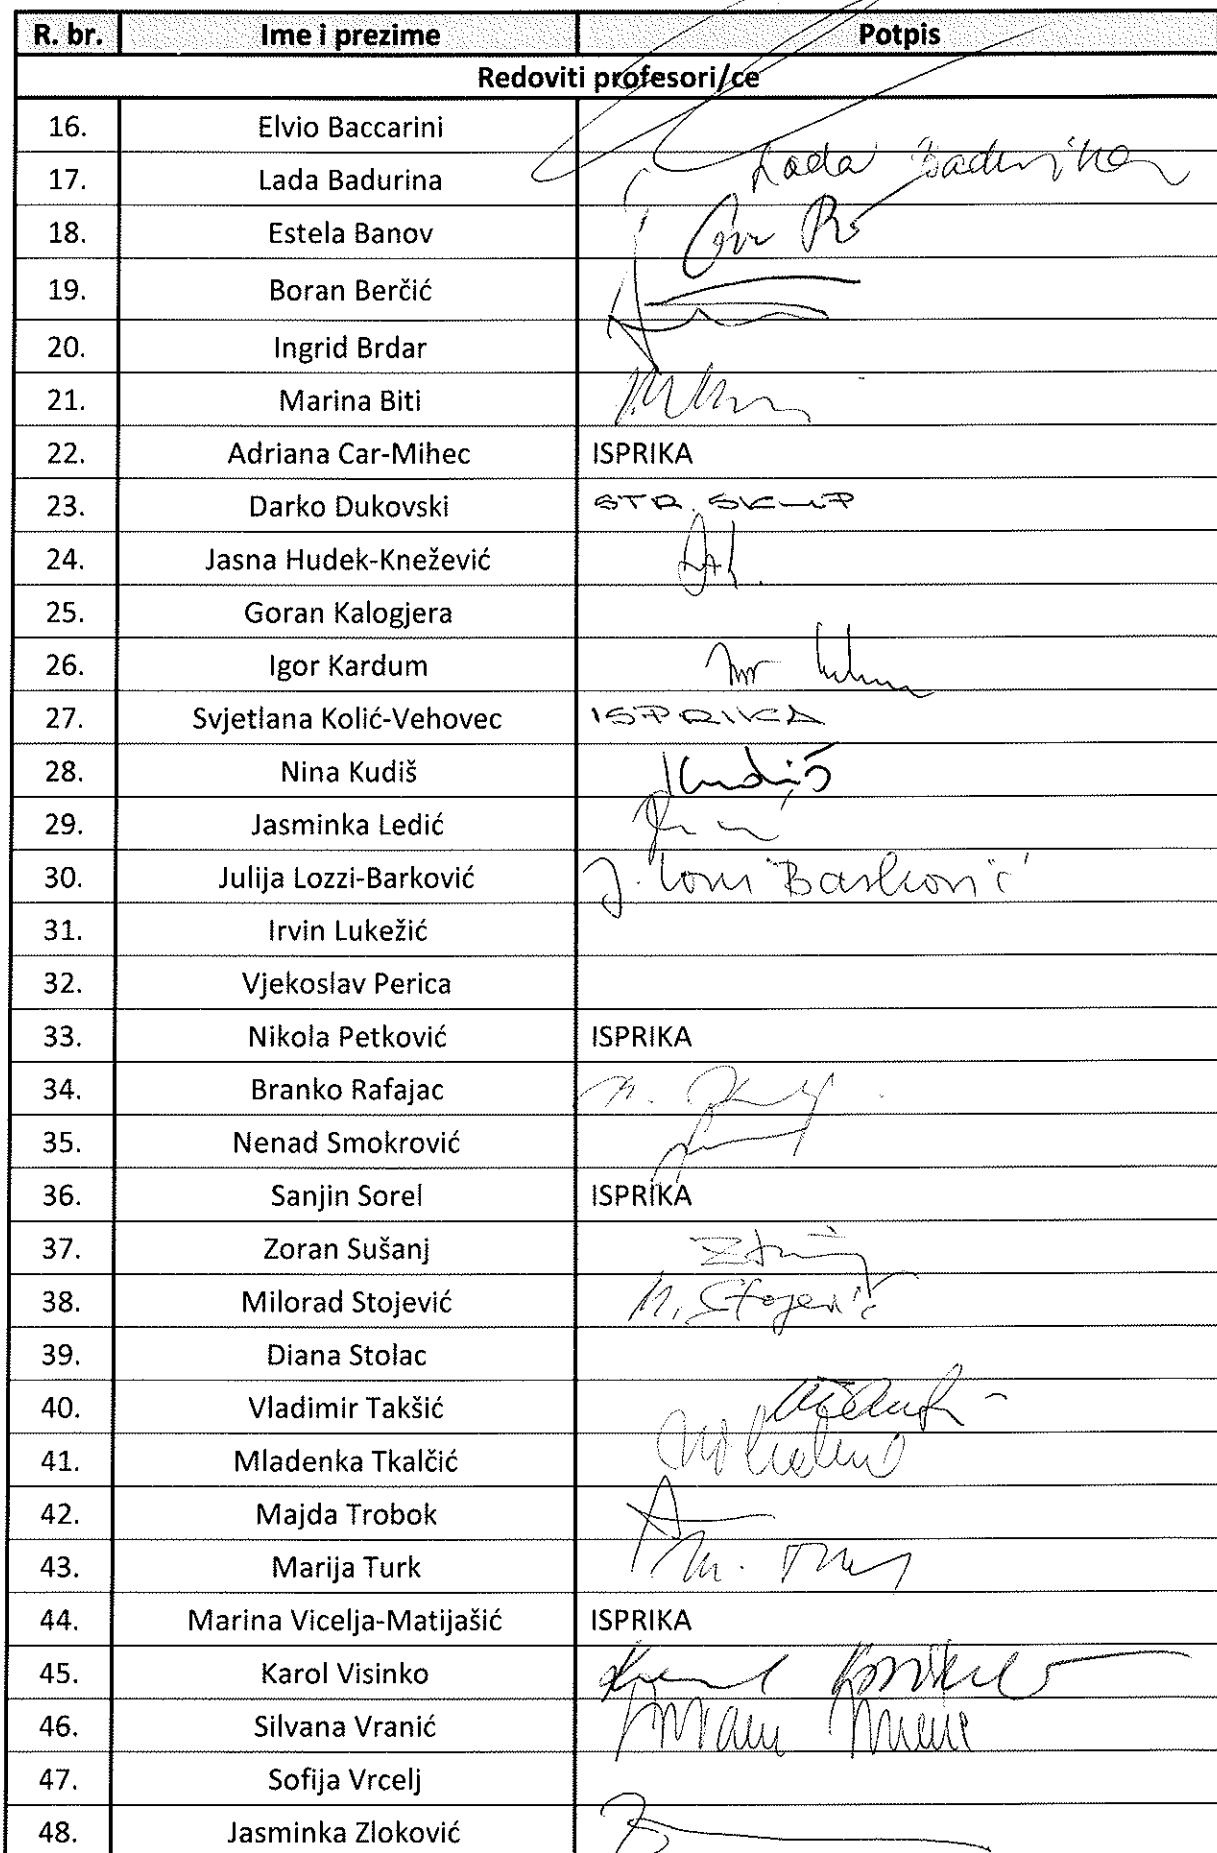 R. br. Ime i prezime Potpis
Redoviti profesori/ce
16. Elvio Baccarini
17. Lada Badurina Lada Badurina
18. Estela Banov
19. Boran Berčić
20. Ingrid Brdar
21. Marina Biti
22. Adriana Car-Mihec ISPRIKA
23. Darko Dukovski STR. SKUP
24. Jasna Hudek-Knežević
25. Goran Kalogjera
26. Igor Kardum
27. Svjetlana Kolić-Vehovec ISPRIKA
28. Nina Kudiš Kudiš
29. Jasminka Ledić
30. Julija Lozzi-Barković J. Lozzi Barković
31. Irvin Lukežić
32. Vjekoslav Perica
33. Nikola Petković ISPRIKA
34. Branko Rafajac
35. Nenad Smokrović
36. Sanjin Sorel ISPRIKA
37. Zoran Sušanj
38. Milorad Stojević M. Stojević
39. Diana Stolac
40. Vladimir Takšić
41. Mladenka Tkalčić
42. Majda Trobok
43. Marija Turk
44. Marina Vicelja-Matijašić ISPRIKA
45. Karol Visinko
46. Silvana Vranić
47. Sofija Vrcelj
48. Jasminka Zloković